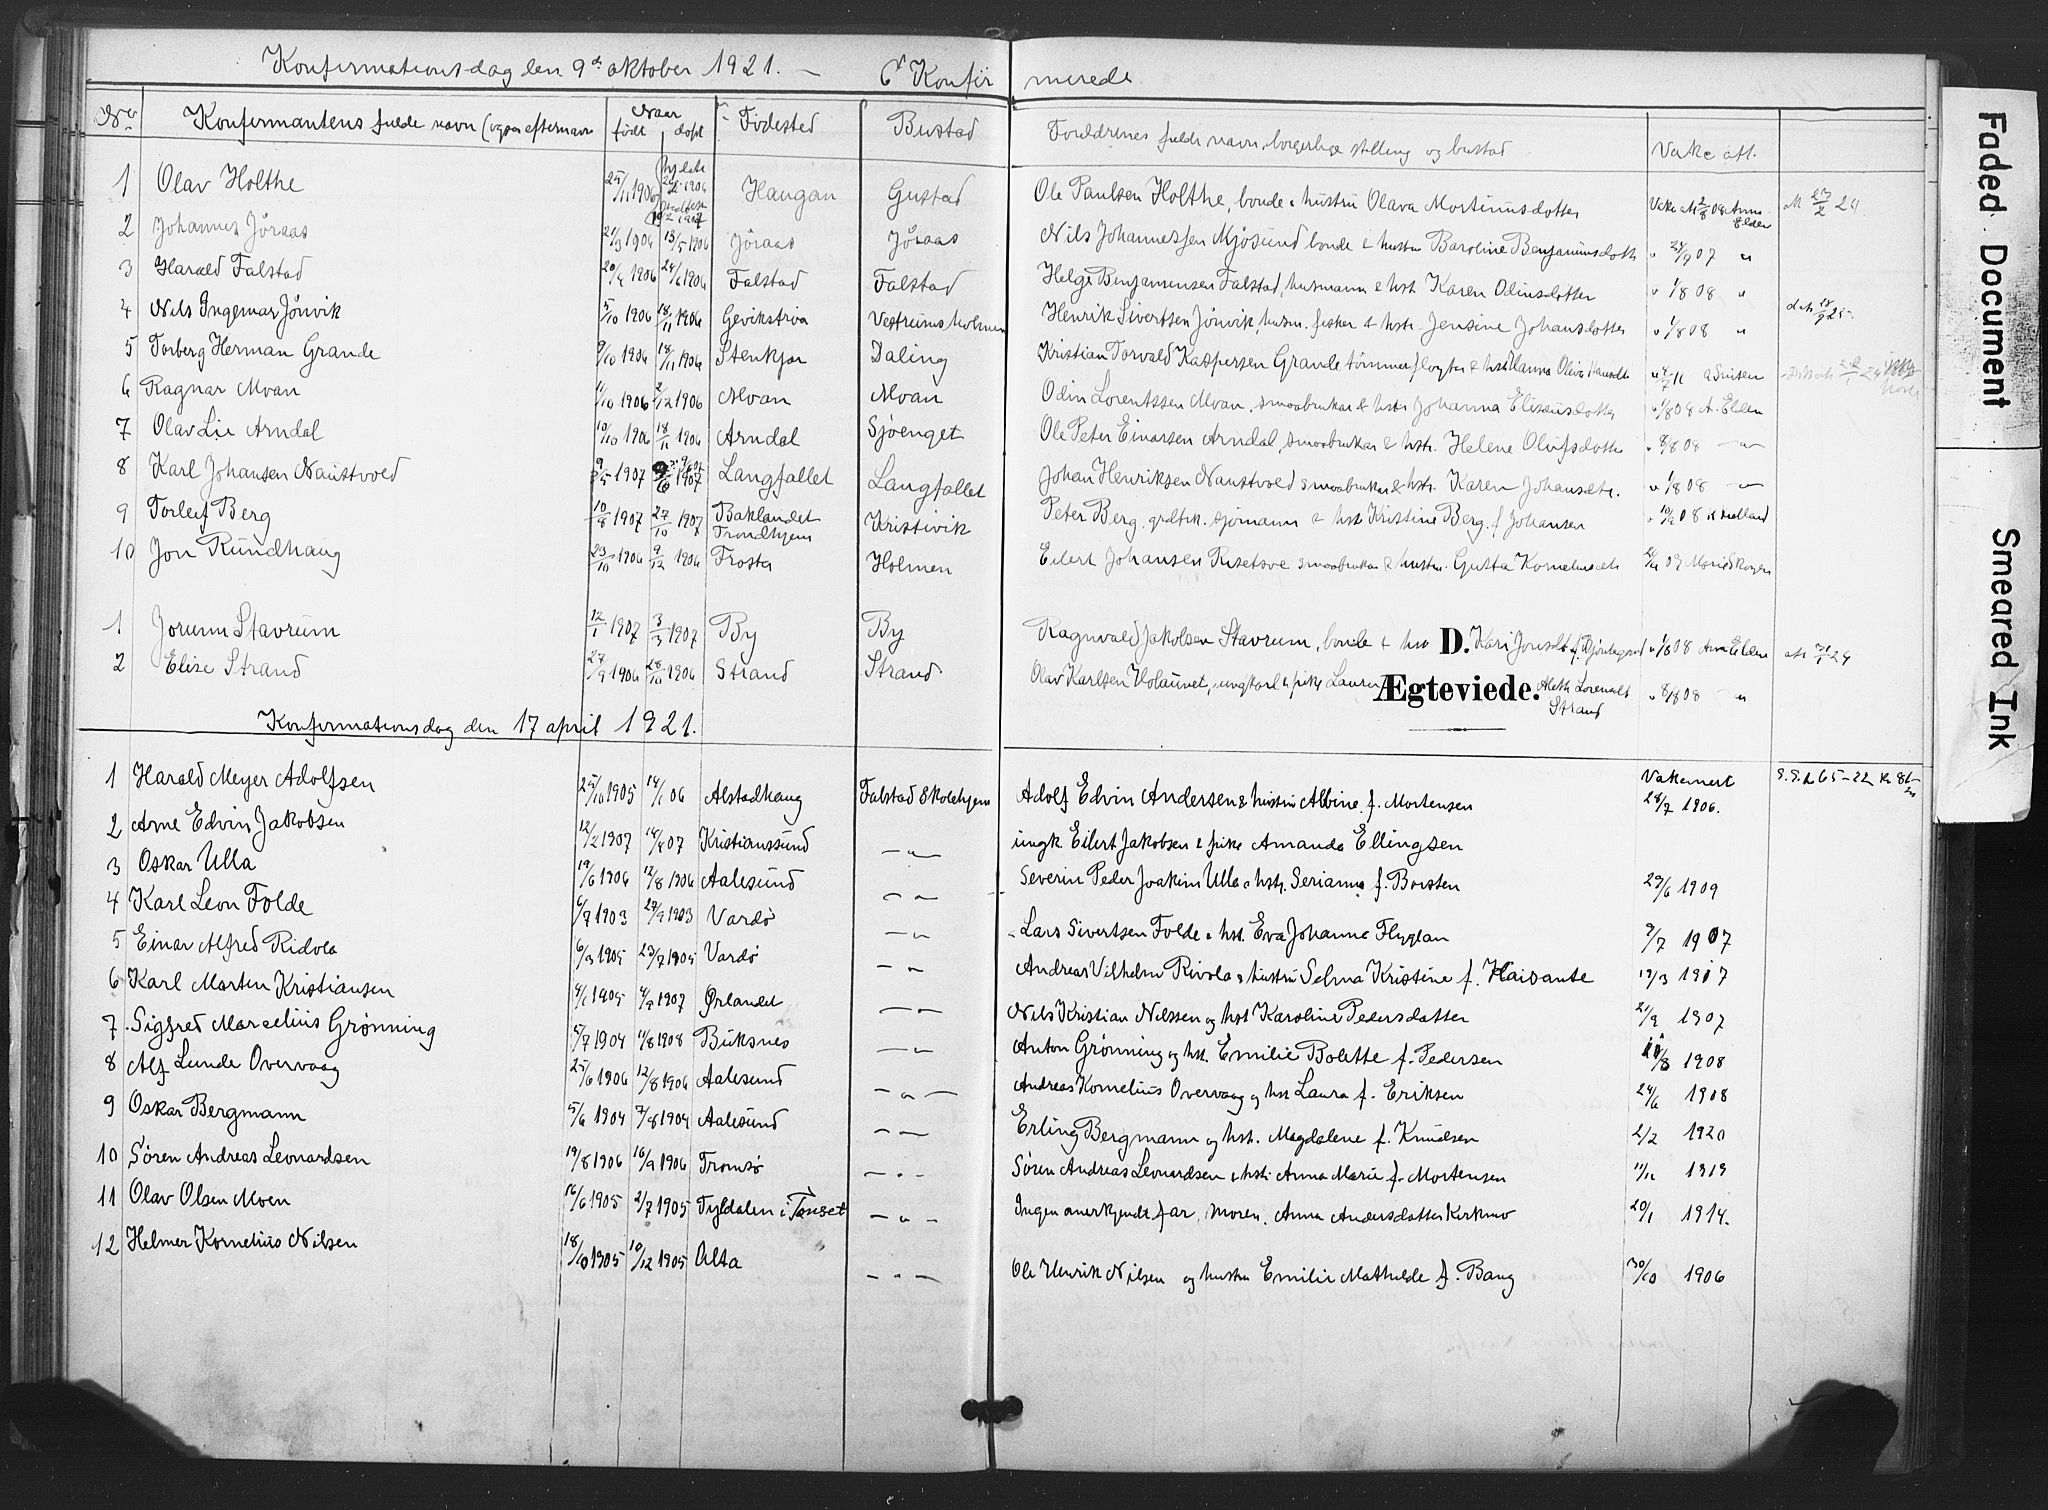 Konfirmationsdag den 9de oktober 1921. — C Konfir merede
No Konfirmantens fulde navn (ogsaa efternavn Naar født døpt Fødested Bustad Foreldrenes fulde navn, borgerlige stilling og bustad Vake att.
1 Olav Holthe 25/11 1906 Haugan Gustad Ole Paulsen Holthe, bonde & hustru Olava Mortinusdotter Vake att 2/8 08 Anna Elden att 27/2 24
2 Johannes Jøraas 21/3 1906 13/5 1906 Jøraas Jøraas Nils Johannessen Mjøsund bonde & hustru Baroline Benjaminsdotte " 24/9 07 "
3 Harald Falstad 20/4 1906 24/6 1906 Falstad Falstad Helge Benjaminsen Falstad, husmann & hst. Karen Odinsdotter " 1/8 08 "
4 Nils Ingemar Jønvik 5/10 1906 18/11 1906 Gevikstrøa Vestrumsholmen Henrik Sivertsen Jønvik, husm. fisker & hstr. Jensine Johansdotter " 1/8 08 "
5 Torberg Herman Grande 9/10 1906 18/11 1906 Stenkjær Daling Kristian Torvald Kaspersen Grande tømmerfløyter & hst Hanna Oliva Hansdtr
6 Ragnar Moan 11/10 1906 2/12 1906 Moan Moan Odin Lorentssen Moan, smaabruker & hstr Johanna Eliseusdotter " 1/8 08 A. Elden
7 Olav Lie Arndal 10/10 1906 18/11 1906 Arndal Sjøenget Ole Peter Einarsen Arndal, smaabruker & hstr. Helene Olufsdotter " 8/8 08 — " —
8 Karl Johansen Naustvold 9/5 1907 1907 Langfallet Langfallet Johan Henriksen Naustvold smaabruker & hstr. Karen Johansdtr. " 1/8 08 — " —
9 Torleif Berg 10/8 1907 27/10 1907 Baklandet Trondhjem Kristivik Peter Berg, sjømann & hst Kristine Berg f. Johansen
10 Jon Rundhaug 23/10 1906 9/12 1906 Frosta Holmen Eilert Johansen Risetsve smaabruker & hustru. Gusta
1 Jorunn Stavrum 12/1 1907 3/3 1907 By By Ragnvald Jakobsen Stavrum, bonde & hst D. Kari " 1/8 08 Anna Elden att 31/1 24
2 Elise Strand 27/9 1906 28/10 1906 Strand Strand Olav Karlsen Holaunet, ungkarl & pike Laura Ægteviede. Strand " 8/8 08 — "
Konfirmationsdag den 17 april 1921.
1 Harald Meyer Adolfsen 25/10 1905 14/1 06 Alstadhaug Falstad Skolehjem Adolf Edvin Andersen & hustru Albine f. Mortensen Vakcinert 28/7 1906.
2 Arne Edvin Jakobsen 12/2 1907 14/8 07 Kristianssund — " — ungk Eilert Jakobsen & pike Amanda Ellingsen
3 Oskar Ulla 19/6 1906 12/8 1906 Aalesund — " — Severin Peder Joakim Ulla & hstr. Serianna f. Borsten 29/6 1909
4 Karl Leon Folde 6/7 1903 27/9 1903 Vardø — " — Lars Sivertsen Folde & hst. Eva Johanne Flygtan 9/7 1907
5 Einar Alfred Ridola 6/3 1905 23/7 1905 Vardø — " — Andreas Vilhelm Rivola & hustru Selma Kristine f. Haisante 19/3 1917
6 Karl Morten Kristiansen 4/1 1905 4/9 1907 Ørlandet — " — Nils Kristian Nilssen og hst Karoline Pedersdatter 21/9 1907
7 Sigfred Marcelius Grønning 5/7 1904 11/8 1908 Buksnes — " — Anton Grønning og hst. Emilie Bolette f. Pedersen 11/8 1908
8 Alf Lunde Overvaag 25/6 1906 12/8 1906 Aalesund — " — Andreas Kornelius Overvaag og hst Laura f. Eriksen 24/6 1908
9 Oskar Bergmann 5/6 1904 7/8 1904 Aalesund — " — Erling Bergmann og hst. Magdalene f. Knudsen 2/2 1920
10 Søren Andreas Leonardsen 19/8 1906 16/9 1906 Tromsø — " — Søren Andreas Leonardsen & hst. Anna Marie f. Mortensen 19/11 1919
11 Olav Olsen Moen 16/6 1905 2/7 1905 Tyldalen i Tønset — " — Ingen anerkjendt far, moren. Anna Andersdatter Kirkmo 20/1 1914.
12 Helmer Kornelius Nilsen 18/10 1905 10/12 1905 Alta — " — Ole Henrik Nilsen og hustru Emilie Mathilde f. Bang 30/10 1906
Faded Document
Smeared Ink